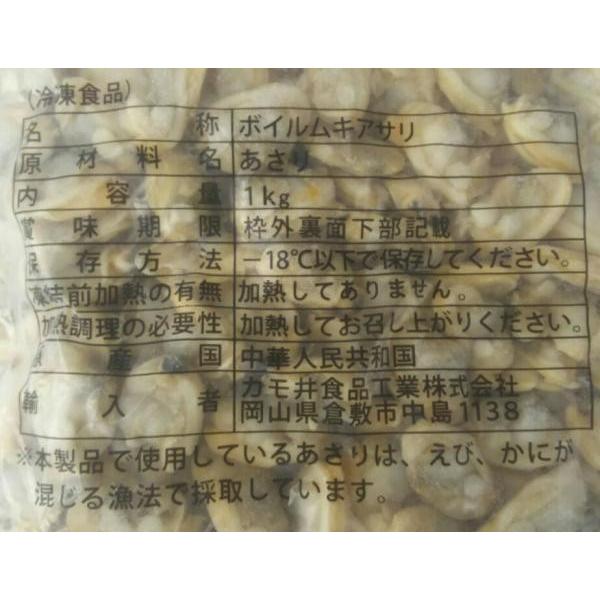 (冷凍食品)
名称 ボイルムキアサリ
原材料名 あさり
内容量 1kg
賞味期限 枠外裏面下部記載
保存方法 －18℃以下で保存してください。
凍結前加熱の有無 加熱してありません。
加熱調理の必要性 加熱してお召し上がりください。
原産国 中華人民共和国
輸入者 カモ井食品工業株式会社
岡山県倉敷市中島1138
※本製品で使用しているあさりは、えび、かにが
混じる漁法で採取しています。